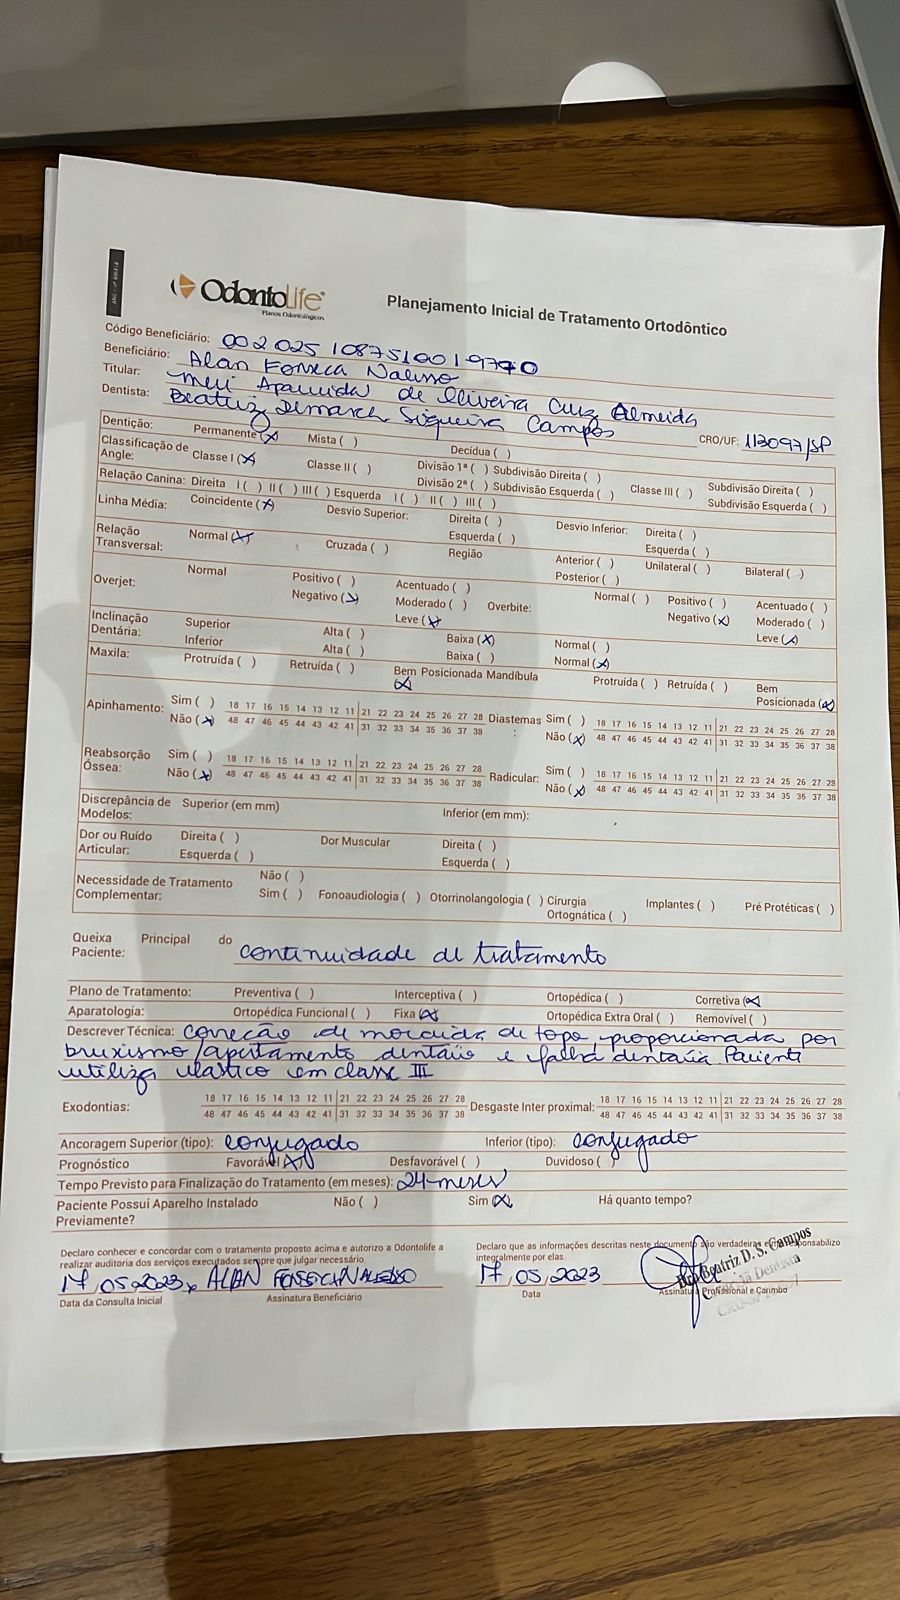 OdontoLife
Planos Odontológicos
Planejamento Inicial de Tratamento Ortodôntico
Código Beneficiário: 002 025 10875100 1 97
Beneficiário: Alan Fonseca Nalesso
Titular: Meri Aparecida de Oliveira Cruz Almeida
Dentista: Beatriz Demarch Siqueira Campos CRO/UF: 113097/SP
Dentição: Permanente (x) Mista ( ) Decídua ( )
Classificação de Angle: Classe I (x) Classe II ( ) Divisão 1ª ( ) Subdivisão Direita ( ) Classe III ( ) Subdivisão Direita ( )
Divisão 2ª ( ) Subdivisão Esquerda ( ) Subdivisão Esquerda ( )
Relação Canina: Direita I ( ) II ( ) III ( ) Esquerda I ( ) II ( ) III ( )
Linha Média: Coincidente (x) Desvio Superior: Direita ( ) Desvio Inferior: Direita ( )
Esquerda ( ) Esquerda ( )
Relação Transversal: Normal (x) Cruzada ( ) Região Anterior ( ) Unilateral ( ) Bilateral ( )
Posterior ( )
Overjet: Normal Positivo ( ) Acentuado ( ) Overbite: Normal ( ) Positivo ( ) Acentuado ( )
Negativo (x) Moderado ( ) Negativo (x) Moderado ( )
Leve (x) Leve (x)
Inclinação Dentária: Superior Alta ( ) Baixa (x) Normal ( )
Inferior Alta ( ) Baixa ( ) Normal (x)
Maxila: Protruída ( ) Retruída ( ) Bem Posicionada (x) Mandíbula Protruída ( ) Retruída ( ) Bem Posicionada (x)
Apinhamento: Sim ( ) 18 17 16 15 14 13 12 11 | 21 22 23 24 25 26 27 28 Diastemas : Sim ( ) 18 17 16 15 14 13 12 11 | 21 22 23 24 25 26 27 28
Não (x) 48 47 46 45 44 43 42 41 | 31 32 33 34 35 36 37 38 Não (x) 48 47 46 45 44 43 42 41 | 31 32 33 34 35 36 37 38
Reabsorção Óssea: Sim ( ) 18 17 16 15 14 13 12 11 | 21 22 23 24 25 26 27 28 Radicular: Sim ( ) 18 17 16 15 14 13 12 11 | 21 22 23 24 25 26 27 28
Não (x) 48 47 46 45 44 43 42 41 | 31 32 33 34 35 36 37 38 Não (x) 48 47 46 45 44 43 42 41 | 31 32 33 34 35 36 37 38
Discrepância de Modelos: Superior (em mm) Inferior (em mm):
Dor ou Ruído Articular: Direita ( ) Dor Muscular Direita ( )
Esquerda ( ) Esquerda ( )
Necessidade de Tratamento Complementar: Não ( )
Sim ( ) Fonoaudiologia ( ) Otorrinolangologia ( ) Cirurgia Ortognática ( ) Implantes ( ) Pré Protéticas ( )
Queixa Principal do Paciente: continuidade de tratamento
Plano de Tratamento: Preventiva ( ) Interceptiva ( ) Ortopédica ( ) Corretiva (x)
Aparatologia: Ortopédica Funcional ( ) Fixa (x) Ortopédica Extra Oral ( ) Removível ( )
Descrever Técnica: Correção de mordida de topo, proporcionada por
bruxismo/apertamento dentário e falha dentária. Paciente
utiliza elástico em classe III
Exodontias: 18 17 16 15 14 13 12 11 | 21 22 23 24 25 26 27 28 Desgaste Inter proximal: 18 17 16 15 14 13 12 11 | 21 22 23 24 25 26 27 28
48 47 46 45 44 43 42 41 | 31 32 33 34 35 36 37 38 48 47 46 45 44 43 42 41 | 31 32 33 34 35 36 37 38
Ancoragem Superior (tipo): conjugado Inferior (tipo): conjugado
Prognóstico Favorável (x) Desfavorável ( ) Duvidoso ( )
Tempo Previsto para Finalização do Tratamento (em meses): 24 meses
Paciente Possui Aparelho Instalado Previamente? Não ( ) Sim (x) Há quanto tempo?
Declaro conhecer e concordar com o tratamento proposto acima e autorizo a Odontolife a
realizar auditoria dos serviços executados sempre que julgar necessário.
Declaro que as informações descritas neste documento são verdadeiras e me responsabilizo
integralmente por elas.
17, 05, 2023, x ALAN FONSECA NALESSO 17, 05, 2023
Data da Consulta Inicial Assinatura Beneficiário Data Assinatura Profissional e Carimbo
Dra Beatriz D. S. Campos
Dentista